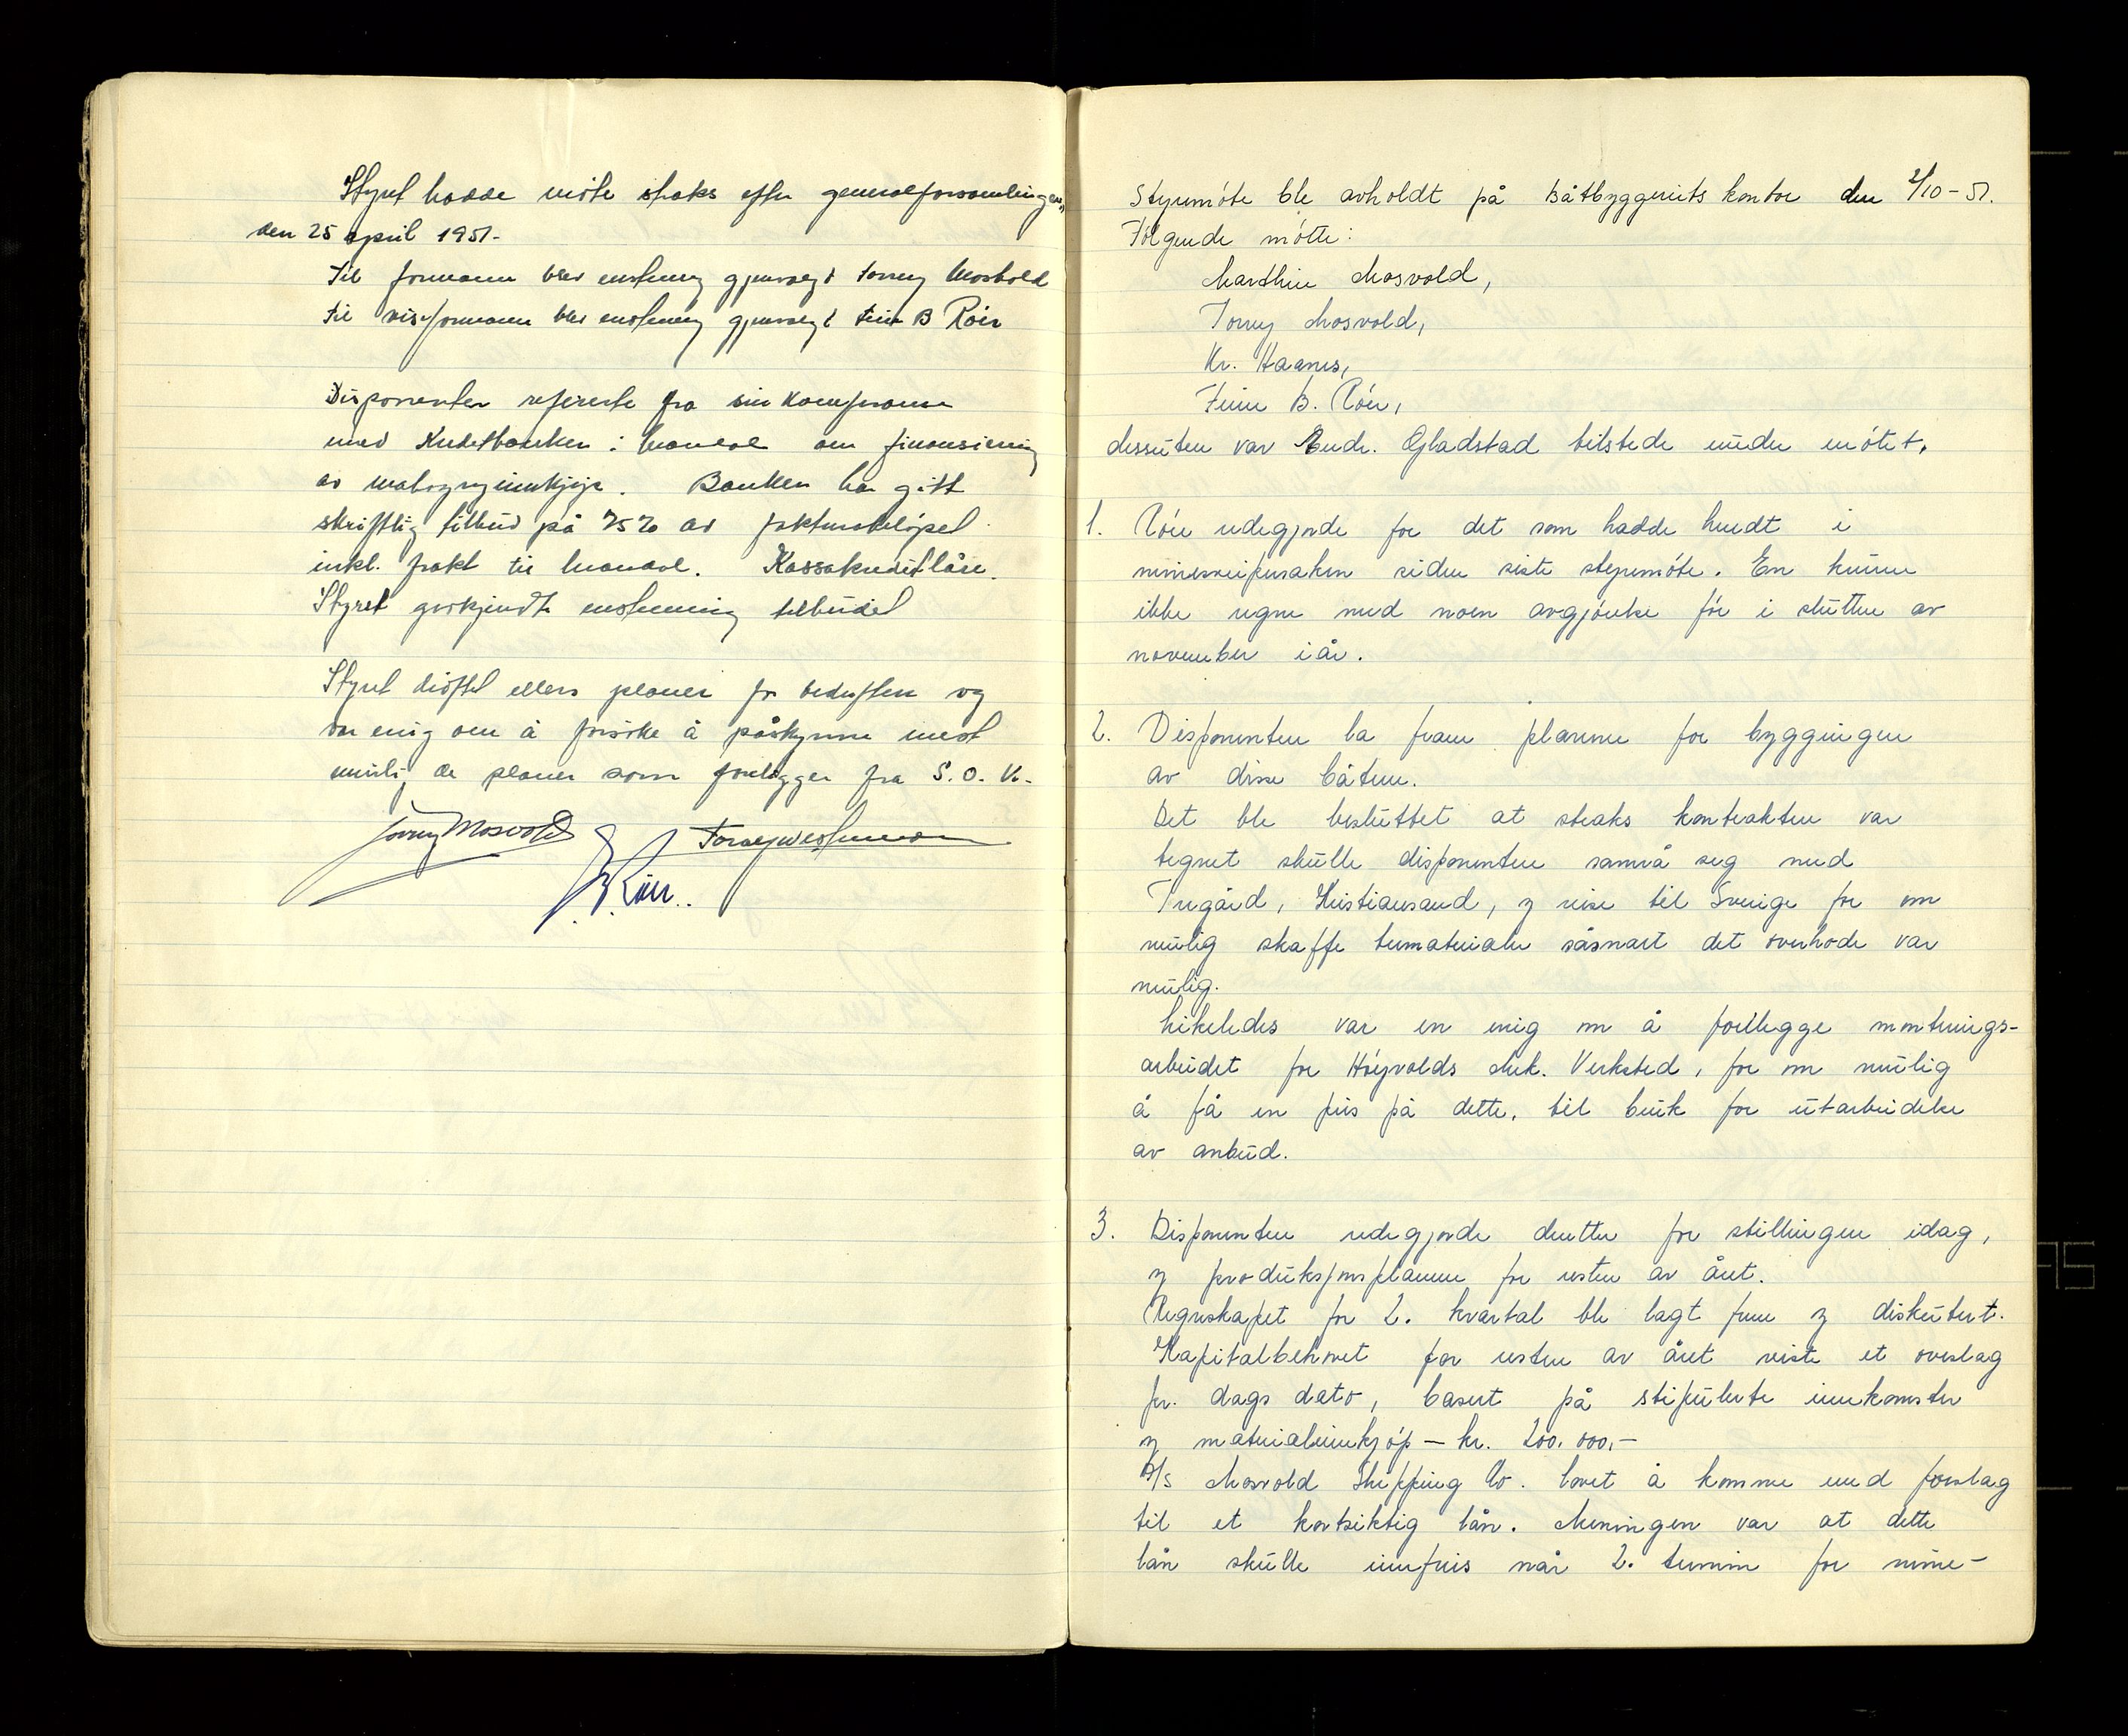 Styret hadde möte straks efter generalforsamlingen,
den 25 april 1951.
Til formann blev enstemmig gjenvalgt Torrey Mosvold
Til viseformann blev enstemmig gjenvalgt Finn B Röer
Disponenten refererte fra sin konferanse
med Kreditbanken i Mandal om finansiering
av mahognyinnkjöp. Banken har gitt
skriftlig tilbud på 75% av fakturabelöpet
inkl. frakt til Mandal. Kassakreditlån.
Styret godkjendte enstemmig tilbudet
Styret dröftet ellers planer for bedriften og
var enig om å forsöke å påskynne mest
mulig de planer som foreligger fra S.O.K.
Torrey Mosvold
F. B. Röer.
Styremöte ble avholdt på Båtbyggeriets kontor den 2/10-51.
Følgende mötte:
Marthin Mosvold,
Torrey Mosvold,
Kr. Haanes,
Finn B. Röer,
dessuten var Endr. Gjladstad tilstede under mötet.
1. Röer redegjorde for det som hadde hendt i
minesveipersaken siden siste styremöte. En kunne
ikke regne med noen avgjörelse för i slutten av
november i år.
2. Disponenten la fram planene for byggingen
av disse båtene.
Det ble besluttet at straks kontrakten var
tegnet skulle disponenten samrå seg med
Tregård, Kristiansand, og reise til Sverige for om
mulig skaffe trematerialer såsnart det overhode var
mulig.
Likeledes var en enig om å forelegge monterings-
arbeidet for Höyvolds Mek. Verksted, for om mulig
å få en pris på dette, til bruk for utarbeidelse
av anbud.
3. Disponenten redegjorde deretter for stillingen idag,
og produksjonsplanene for resten av året.
Regnskapet for 2. kvartal ble lagt frem og diskutert.
Kapitalbehovet for resten av året viste et overslag
pr. dags dato, basert på stipulerte innkomster
og materialinnkjöp - kr. 200.000,-
A/S Mosvold Shipping Co. lovet å komme med forslag
til et kortsiktig lån. Meningen var at dette
lån skulle innfries når 2. termin for mine-